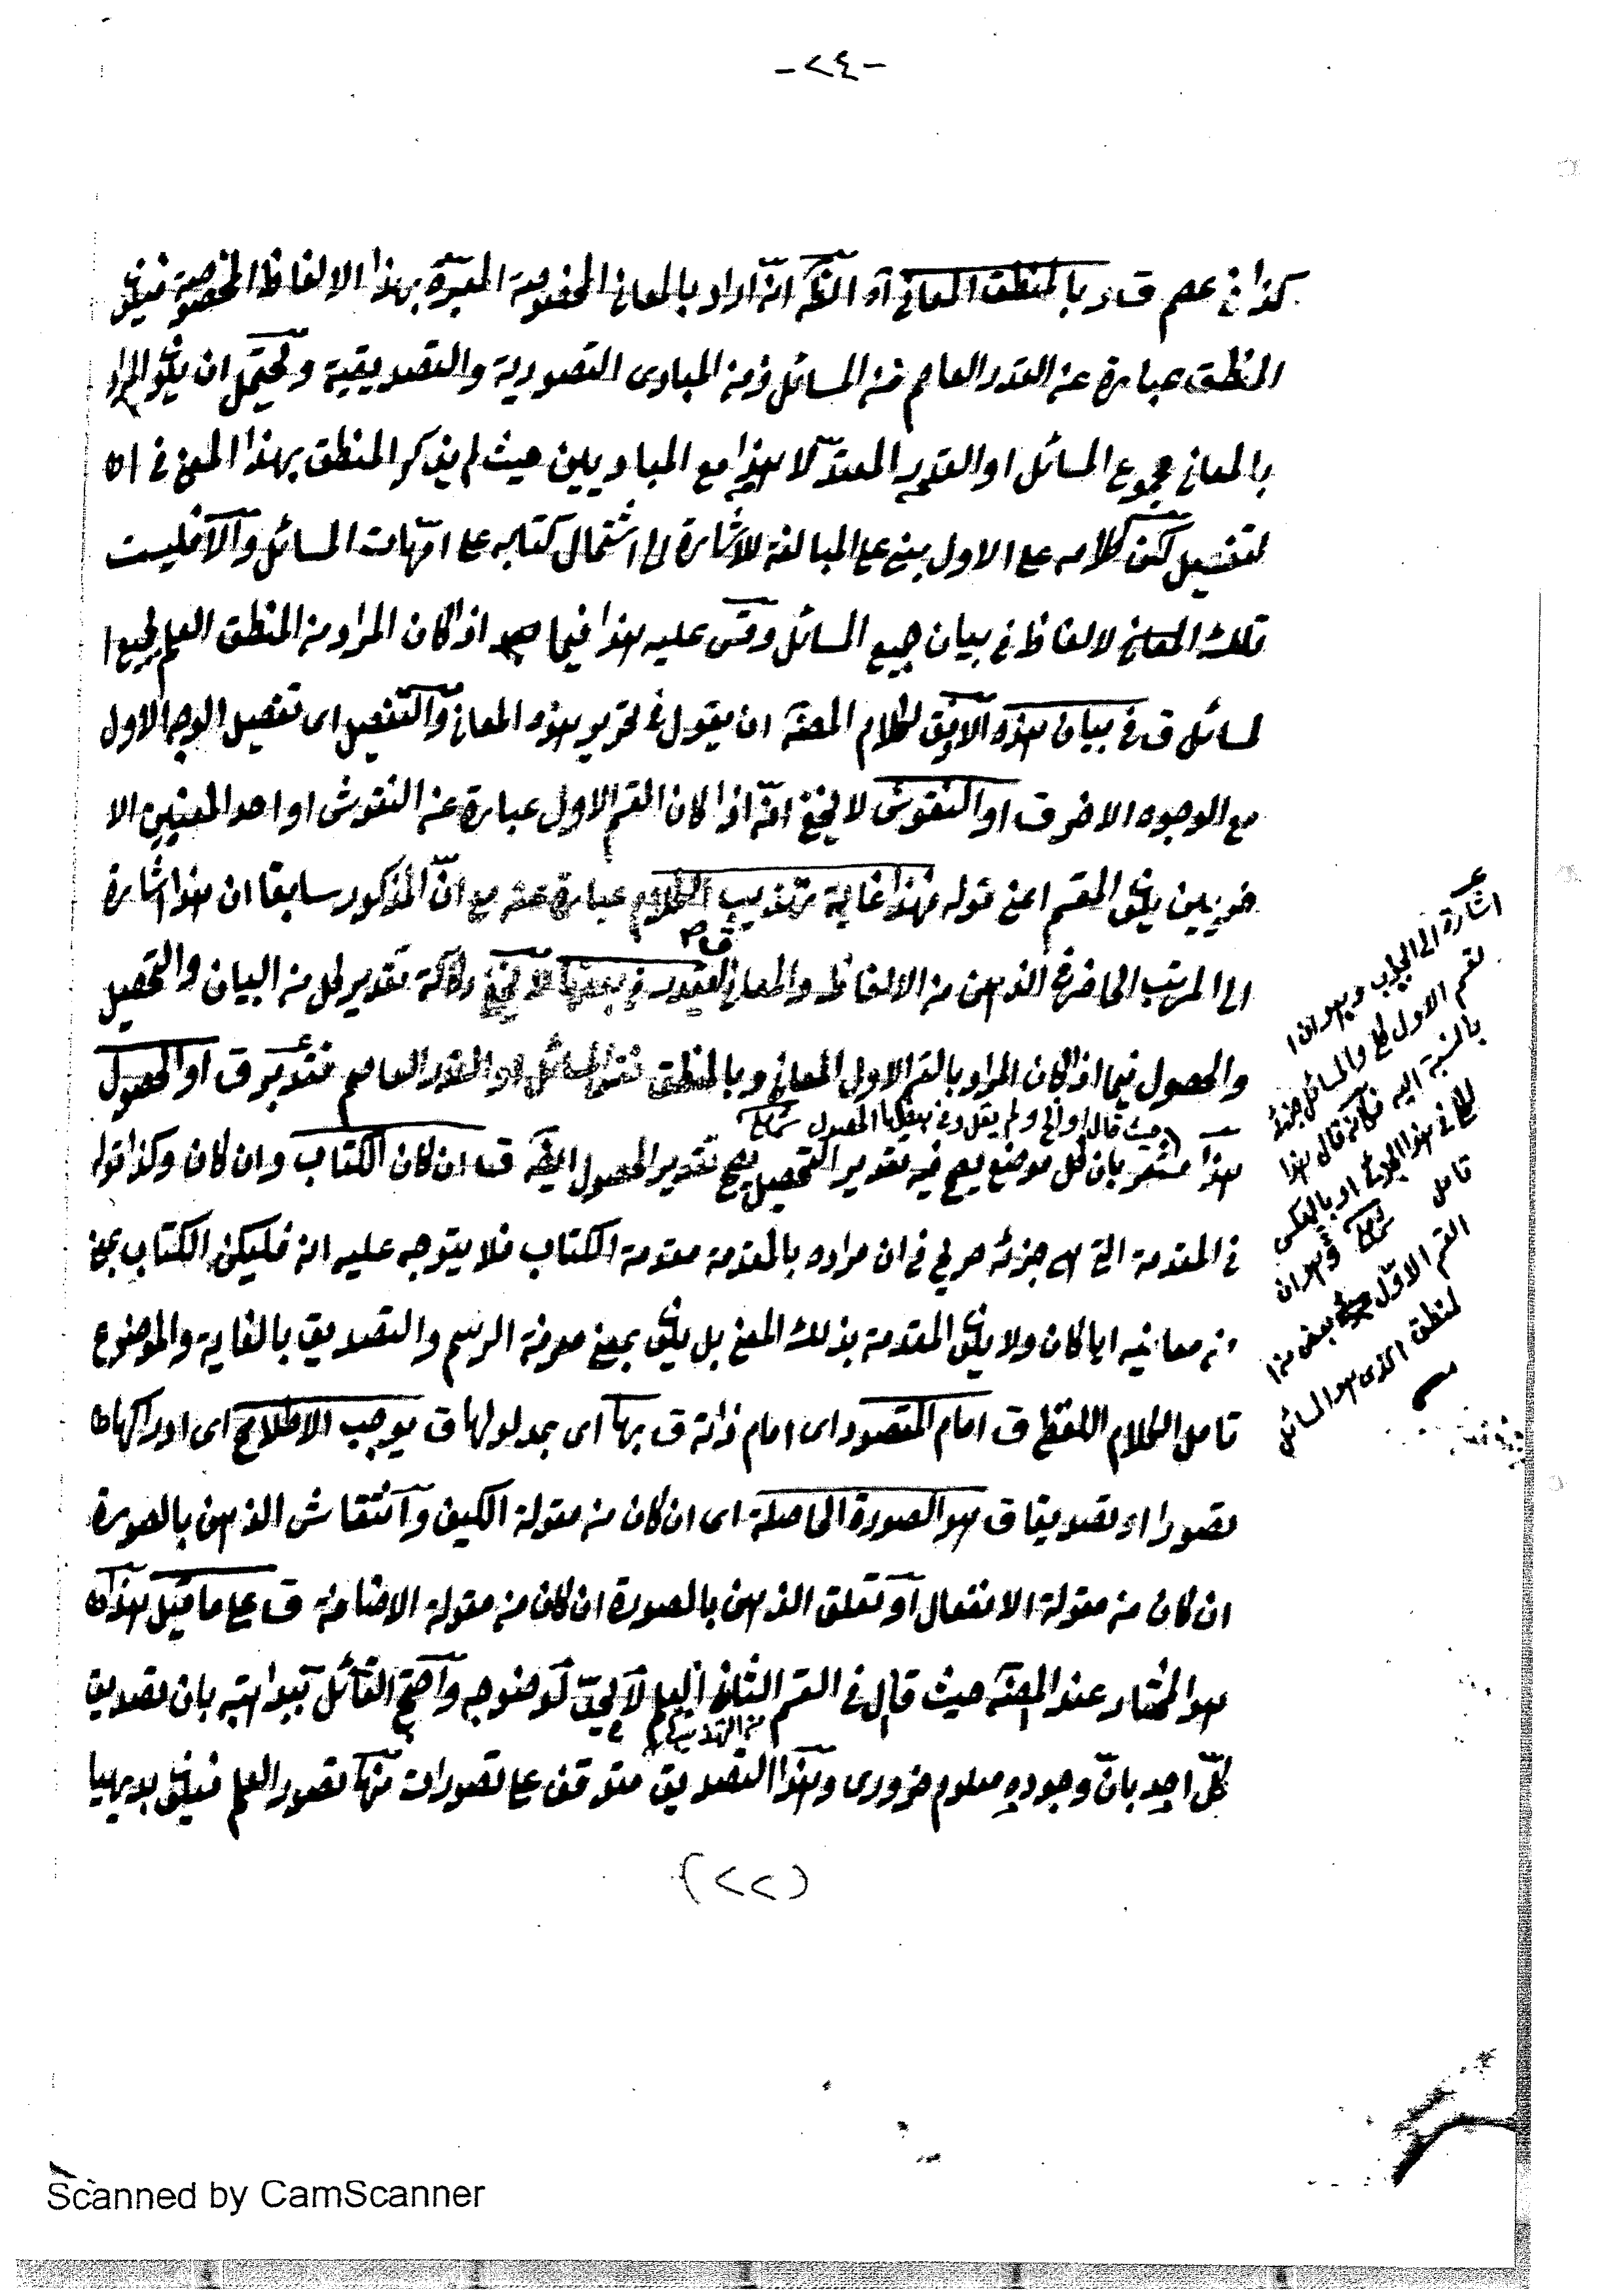 -٢٤-
كذا في عصم ق و بالمنطق المعاني آه الظ انه اراد بالمعاني المخصوصة المعبرة بهذا الالفاظ المخصوصة فيكون
المنطق عبارة عن القدر العاصم من المسائل ومن المبادى التصورية والتصديقية ويحتمل ان يكون المراد
بالمعاني مجموع المسائل او القدر المعتد لا هذا مع المباديين حيث لم يذكر المنطق بهذا المعنى في
لتفصيل لكن كلامه على الاول يبنى على المبالغة للاشارة الى اشتمال كتابه على امهات المسائل والا فليست
تلك المعاني لالفاظ في بيان جميع المسائل وقس عليه هذا فيما اذا كان المراد من المنطق العلم بجميع ا
لمسائل ق في بيان هذه الاليق لكلام المصنف ان يقول في تحرير هذه المعاني والتفصيل اى تفصيل الوجه الاول
مع الوجوه الاخر ق او النقوش لا يخفى انه اذا كان القسم الاول عبارة عن النقوش او احد المعنيين الا
خيرين يكون المقسم اعني قوله فهذا غاية تهذيب الكلام عبارة عنه مع ان المذكور سابقا ان هذا اشارة
الى المرتب الحاضر في الذهن من الالفاظ والمعاني ق في بعضها لا يخفى ركاكة تقدير كل من البيان والتحصيل
والحصول فيما اذا كان المراد بالقسم الاول المعاني وبالمنطق نفس المسائل او القدر العاصم فتدبر ق او الحصول
حيث قال او الخ ولم يقل وفي بعضها الحصول
هذا مشعر بان كل موضع يصح فيه تقدير التحصيل يصح تقدير الحصول ايضا ق ان كان الكتاب وان كان وكذا قوله
في المقدمة التي هي جزئه صريح في ان مراده بالمقدمة مقدمة الكتاب فلا يتوجه عليه انه فليكن الكتاب بمعنى
من معانيه ايا كان ولا يكون المقدمة بذلك المعنى بل يكون بمعنى معرفة الرسم والتصديق بالغاية والموضوع
تامل الكلام اللفظ ق امام المقصود اى امام ذاته ق بها اى بمدلولها ق يوجب الاطلاع اى ادراكها
تصورا او تصديقا ق هو الصورة الحاصلة اى ان كان من مقولة الكيف وانتقاش الذهن بالصورة
ان كان من مقولة الانفعال او تعلق الذهن بالصورة ان كان من مقولة الاضافة ق على ما قيل هذا
هو المختار عند المصنف حيث قال في القسم الثاني العلم لا يحد لوضوحه واحتج القائل ببداهته بان تصديق
من التهذيب
كل احد بان وجوده معلوم ضرورى وهذا التصديق متوقف على تصورات منها تصور العلم فيكون بديهيا
(٢٢)
اشارة الى الجواب وهو ان ا
لقسم الاول كل والمسائل جزء
بالنسبة اليه فكانه قال هذا
الكل في هذا الجزء او بالعكس
تامل
وهو ان
القسم الاول بعض من ا
لمنطق الذى هو المسائل
Scanned by CamScanner